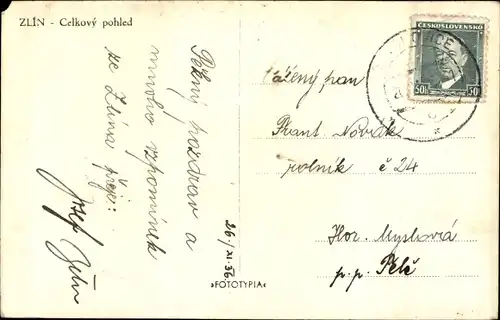 ZLÍN - Celkový pohled
Pěkný pozdrav a
mnoho vzpomínek
ze Zlína
Josef
26./XI.36
»FOTOTYPIA«
ČESKOSLOVENSKO
50 h 50 h
Vážený pan
Frant. Novák
rolník č 24
Hor. Myslová
p. p. Telč